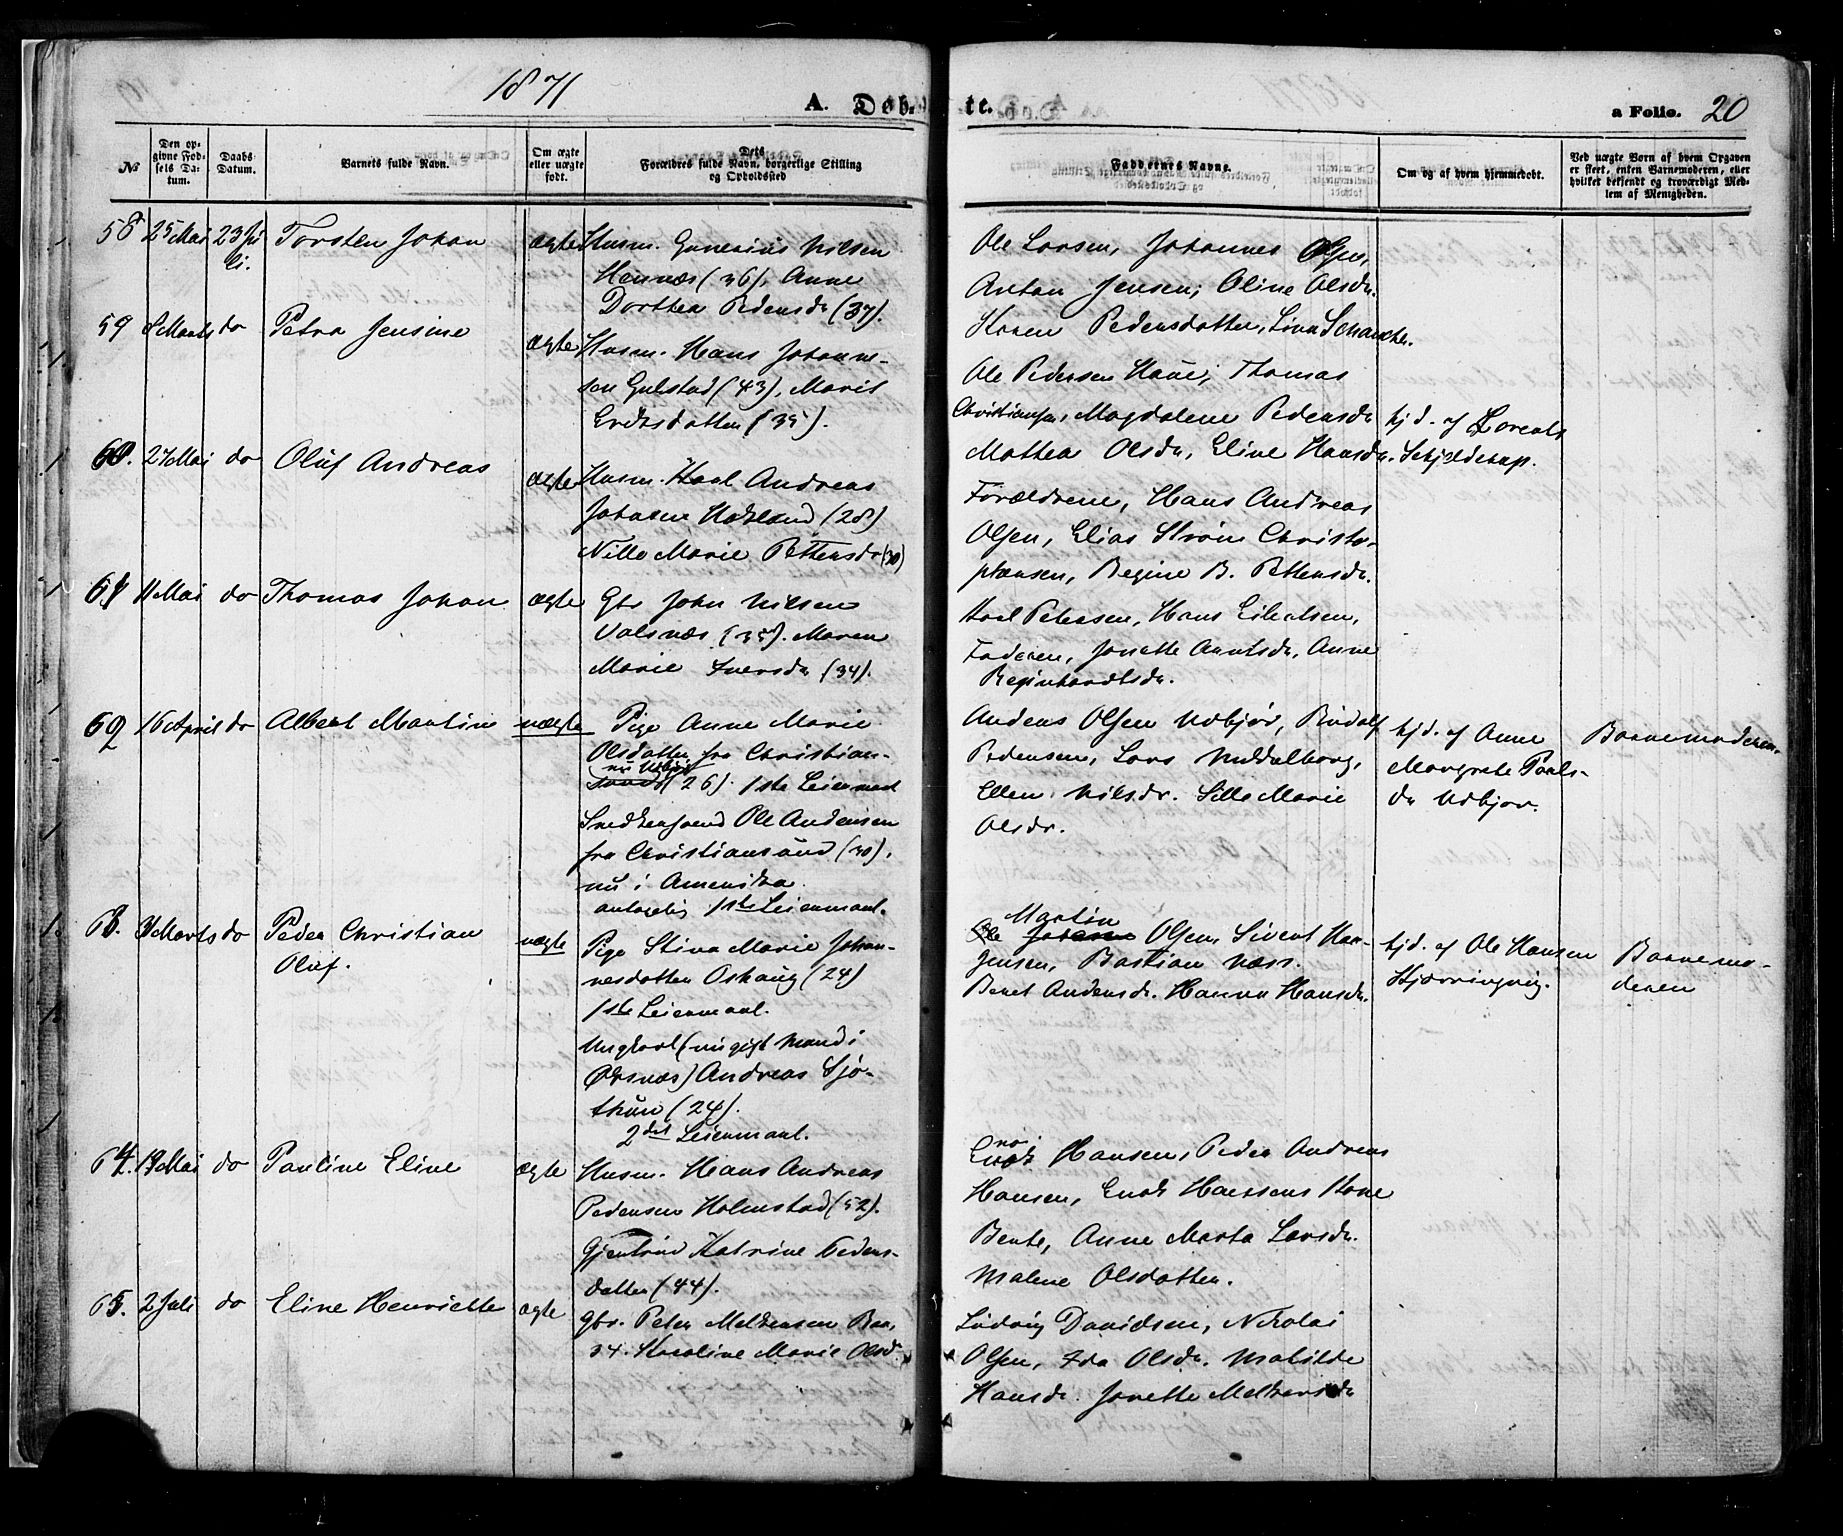 1871
A. Døb-
te.
a Folio. 20
№
Den op-
givne Fød-
sels Da-
tum.
Daabs
Datum.
Barnets fulde Navn.
Om ægte
eller uægte
født.
Dets
Forældres fulde Navn, borgerlige Stilling
og Opholdssted
Faddernes Navne.
Om og af hvem hjemmedøbt.
Ved uægte Børn af hvem Opgaven
er skeet, enten Barnemoderen, eller
hvilket bekjendt og troværdigt Med-
lem af Menigheden.
58 25 Mai 23 Ju-
li.
Torsten Johan
ægte
Husm. Nilsen
Hennæs (36), Anne
Dorthea Pedersdr (37).
Ole Larsen, Johannes Olsen,
Anton Jensen; Oline Olsdr.
Karen Pedersdatter, Lina Schancke.
59 8 Marts do
Petra Jensine
ægte
Husm. Hans Johanne-
sen Gulstad (43), Marit
Eriksdatter (35).
Ole Pedersen Haue; Thomas
Christiansen, Magdalene Pedersdr
Mathea Olsdr, Eline Hansdr.
hjd. af Lorents
Schjelderup.
60. 27 Mai do
Oluf Andreas
ægte
Husm. Karl Andreas
Johansen Hokland (28)
Nille Marie Pettersdr (30)
Forældrene, Hans Andreas
Olsen, Elias Strøm Christo-
phersen, Regine B. Pettersdr.
61 11 Mai do
Thomas Johan
ægte
Gbr John Nilsen
Valsnæs (35). Maren
Marie Iversdr (34).
Karl Petersen, Hans Eilertsen,
Faderen, Jonette Arntsdr, Anne
Reginhardtsdr.
62 16 April do
Albert Martin
uægte
Pige Anne Marie
Olsdatter fra Christian-
nu Udbjør
sund (26). 1ste Leiermaal
Snedkersvend Ole Andersen
fra Christiansund (30),
nu i Amerika
antagelig 1ste Leiermaal.
Anders Olsen Udbjør, Rudolf
Pedersen, Lars Middelborg,
Ellen Nilsdr. Sille Marie
Olsdr.
hjd. af Anne
Margrete Pauls-
dr Udbjør.
Barnemoderen
63. 9 Marts do
Peder Christian
Oluf.
uægte
Pige Stina Marie Johan-
nesdatter Oshaug (24)
1ste Leiermaal.
Ungkarl (nu gift Mand i
Øksnæs) Andreas Sjø-
thun (24).
2det Leiermaal.
Martin
Ole Johan Olsen, Sivert Han-
Jensen, Bastian Næss.
Beret Andersdr. Hanna Hansdr.
hjd. af Ole Hansen
Hjærringvig.
Barnemo-
deren
64. 19 Mai do
Pauline Eline
ægte
Husm. Hans Andreas
Pedersen Holmstad (52).
Gjertrud Katrine Peders-
datter (44).
Enok Hansen, Peder Andreas
Hansen, Enok Hanssens Kone
Bente, Anne Marta Larsdr.
Malene Olsdatter.
65. 2 Juli do
Eline Henriette
ægte
Gbr. Peter Melkersen Boe,
34. Karoline Marie Olsdr
Ludvig Davidsen, Nikolai
Olsen, Ida Olsdr. Matilde
Hansdr. Jonette Melkersdr